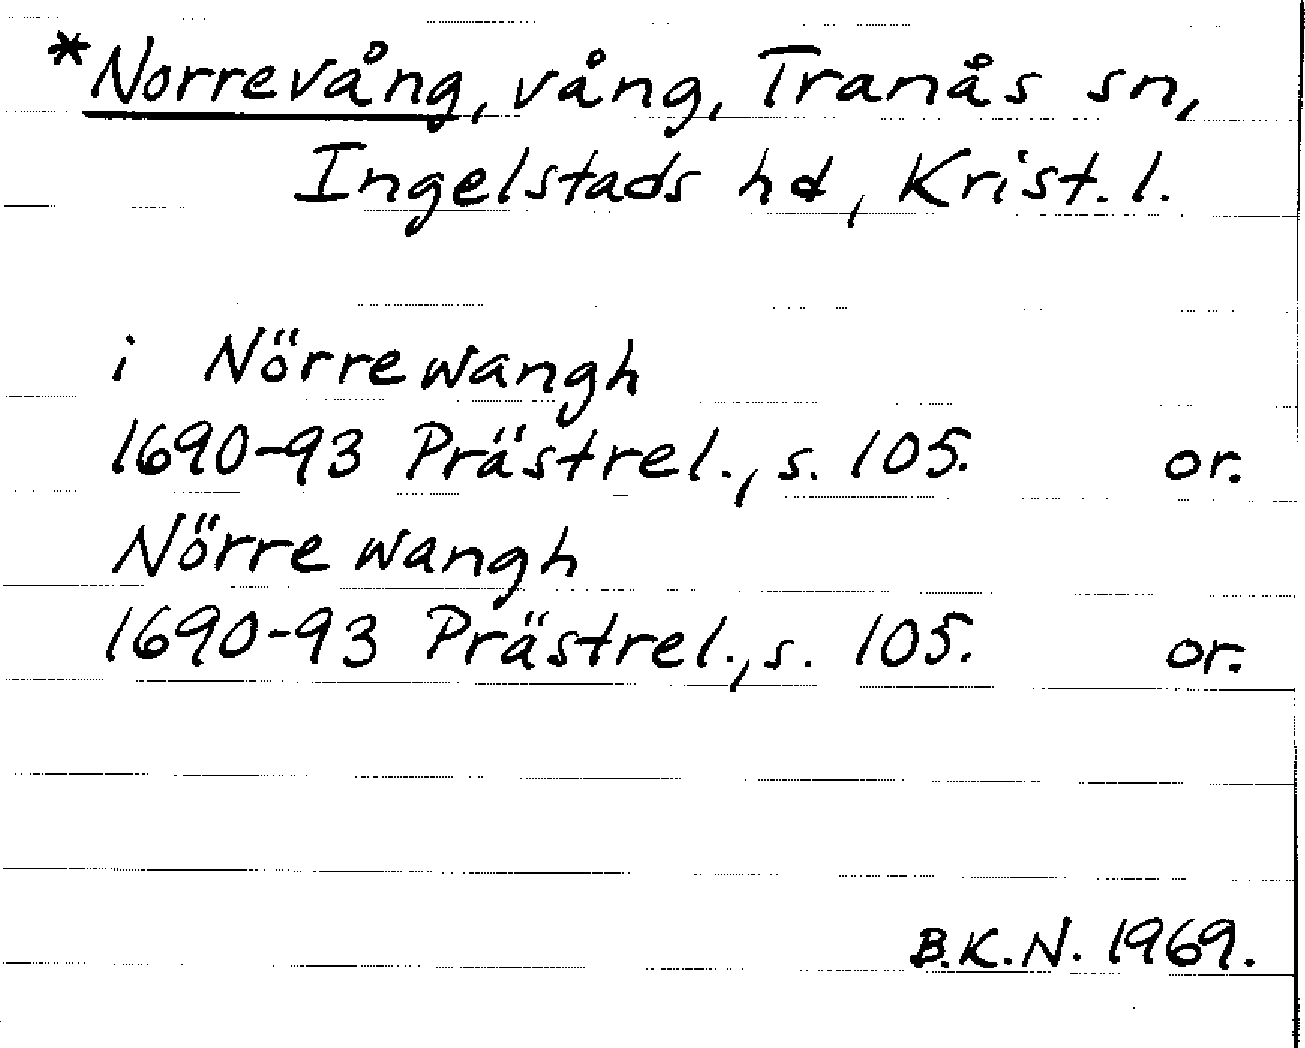 *Norrevång, vång, Tranås sn,
Ingelstads hd, Krist. l.
i Nörrewangh
1690-93 Prästrel., s. 105. or.
Nörre wangh
1690-93 Prästrel., s. 105. or.
B.K.N. 1969.